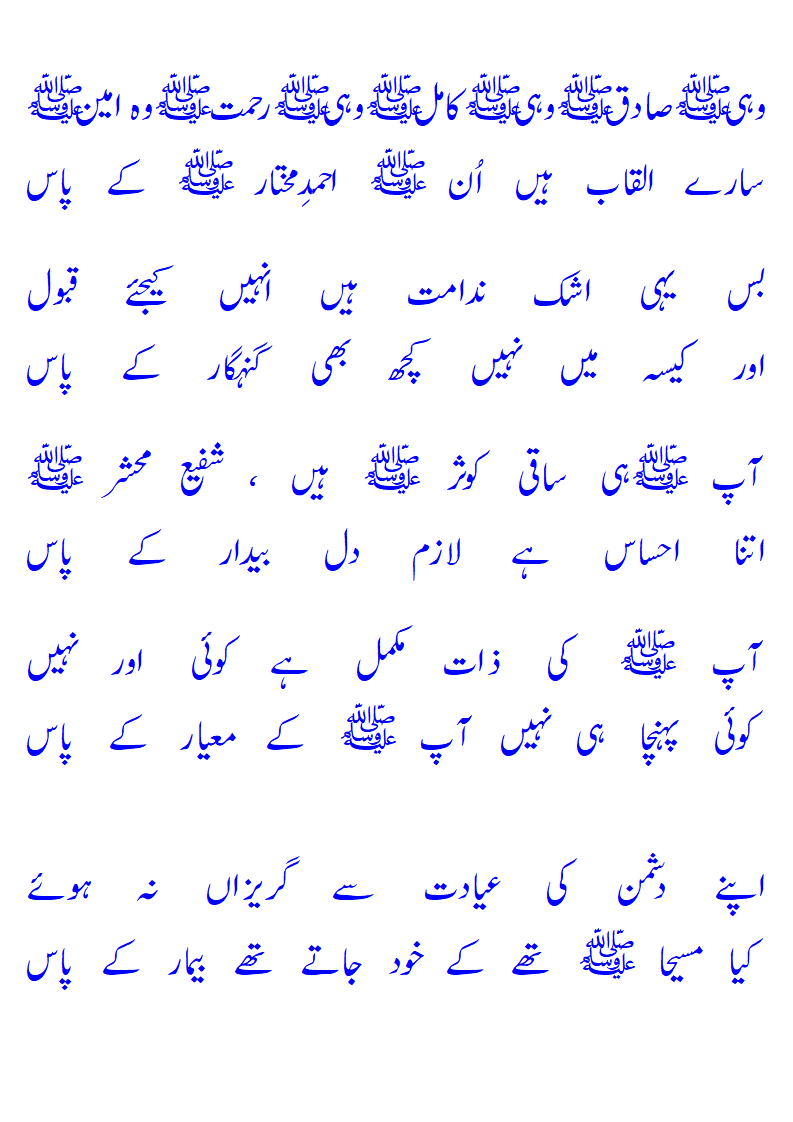 وہی ﷺ صادق ﷺ وہی ﷺ کامل ﷺ وہی ﷺ رحمت ﷺ وہ امین ﷺ
سارے القاب ہیں اُن ﷺ احمدِ مختار ﷺ کے پاس
بس یہی اشک ندامت ہیں انہیں کیجئے قبول
اور کیسہ میں نہیں کچھ بھی گنہگار کے پاس
آپ ﷺ ہی ساقی کوثر ﷺ ہیں ، شفیع محشر ﷺ
اتنا احساس ہے لازم دل بیدار کے پاس
آپ ﷺ کی ذات مکمل ہے کوئی اور نہیں
کوئی پہنچا ہی نہیں آپ ﷺ کے معیار کے پاس
اپنے دشمن کی عیادت سے گریزاں نہ ہوئے
کیا مسیحا ﷺ تھے کے خود جاتے تھے بیمار کے پاس